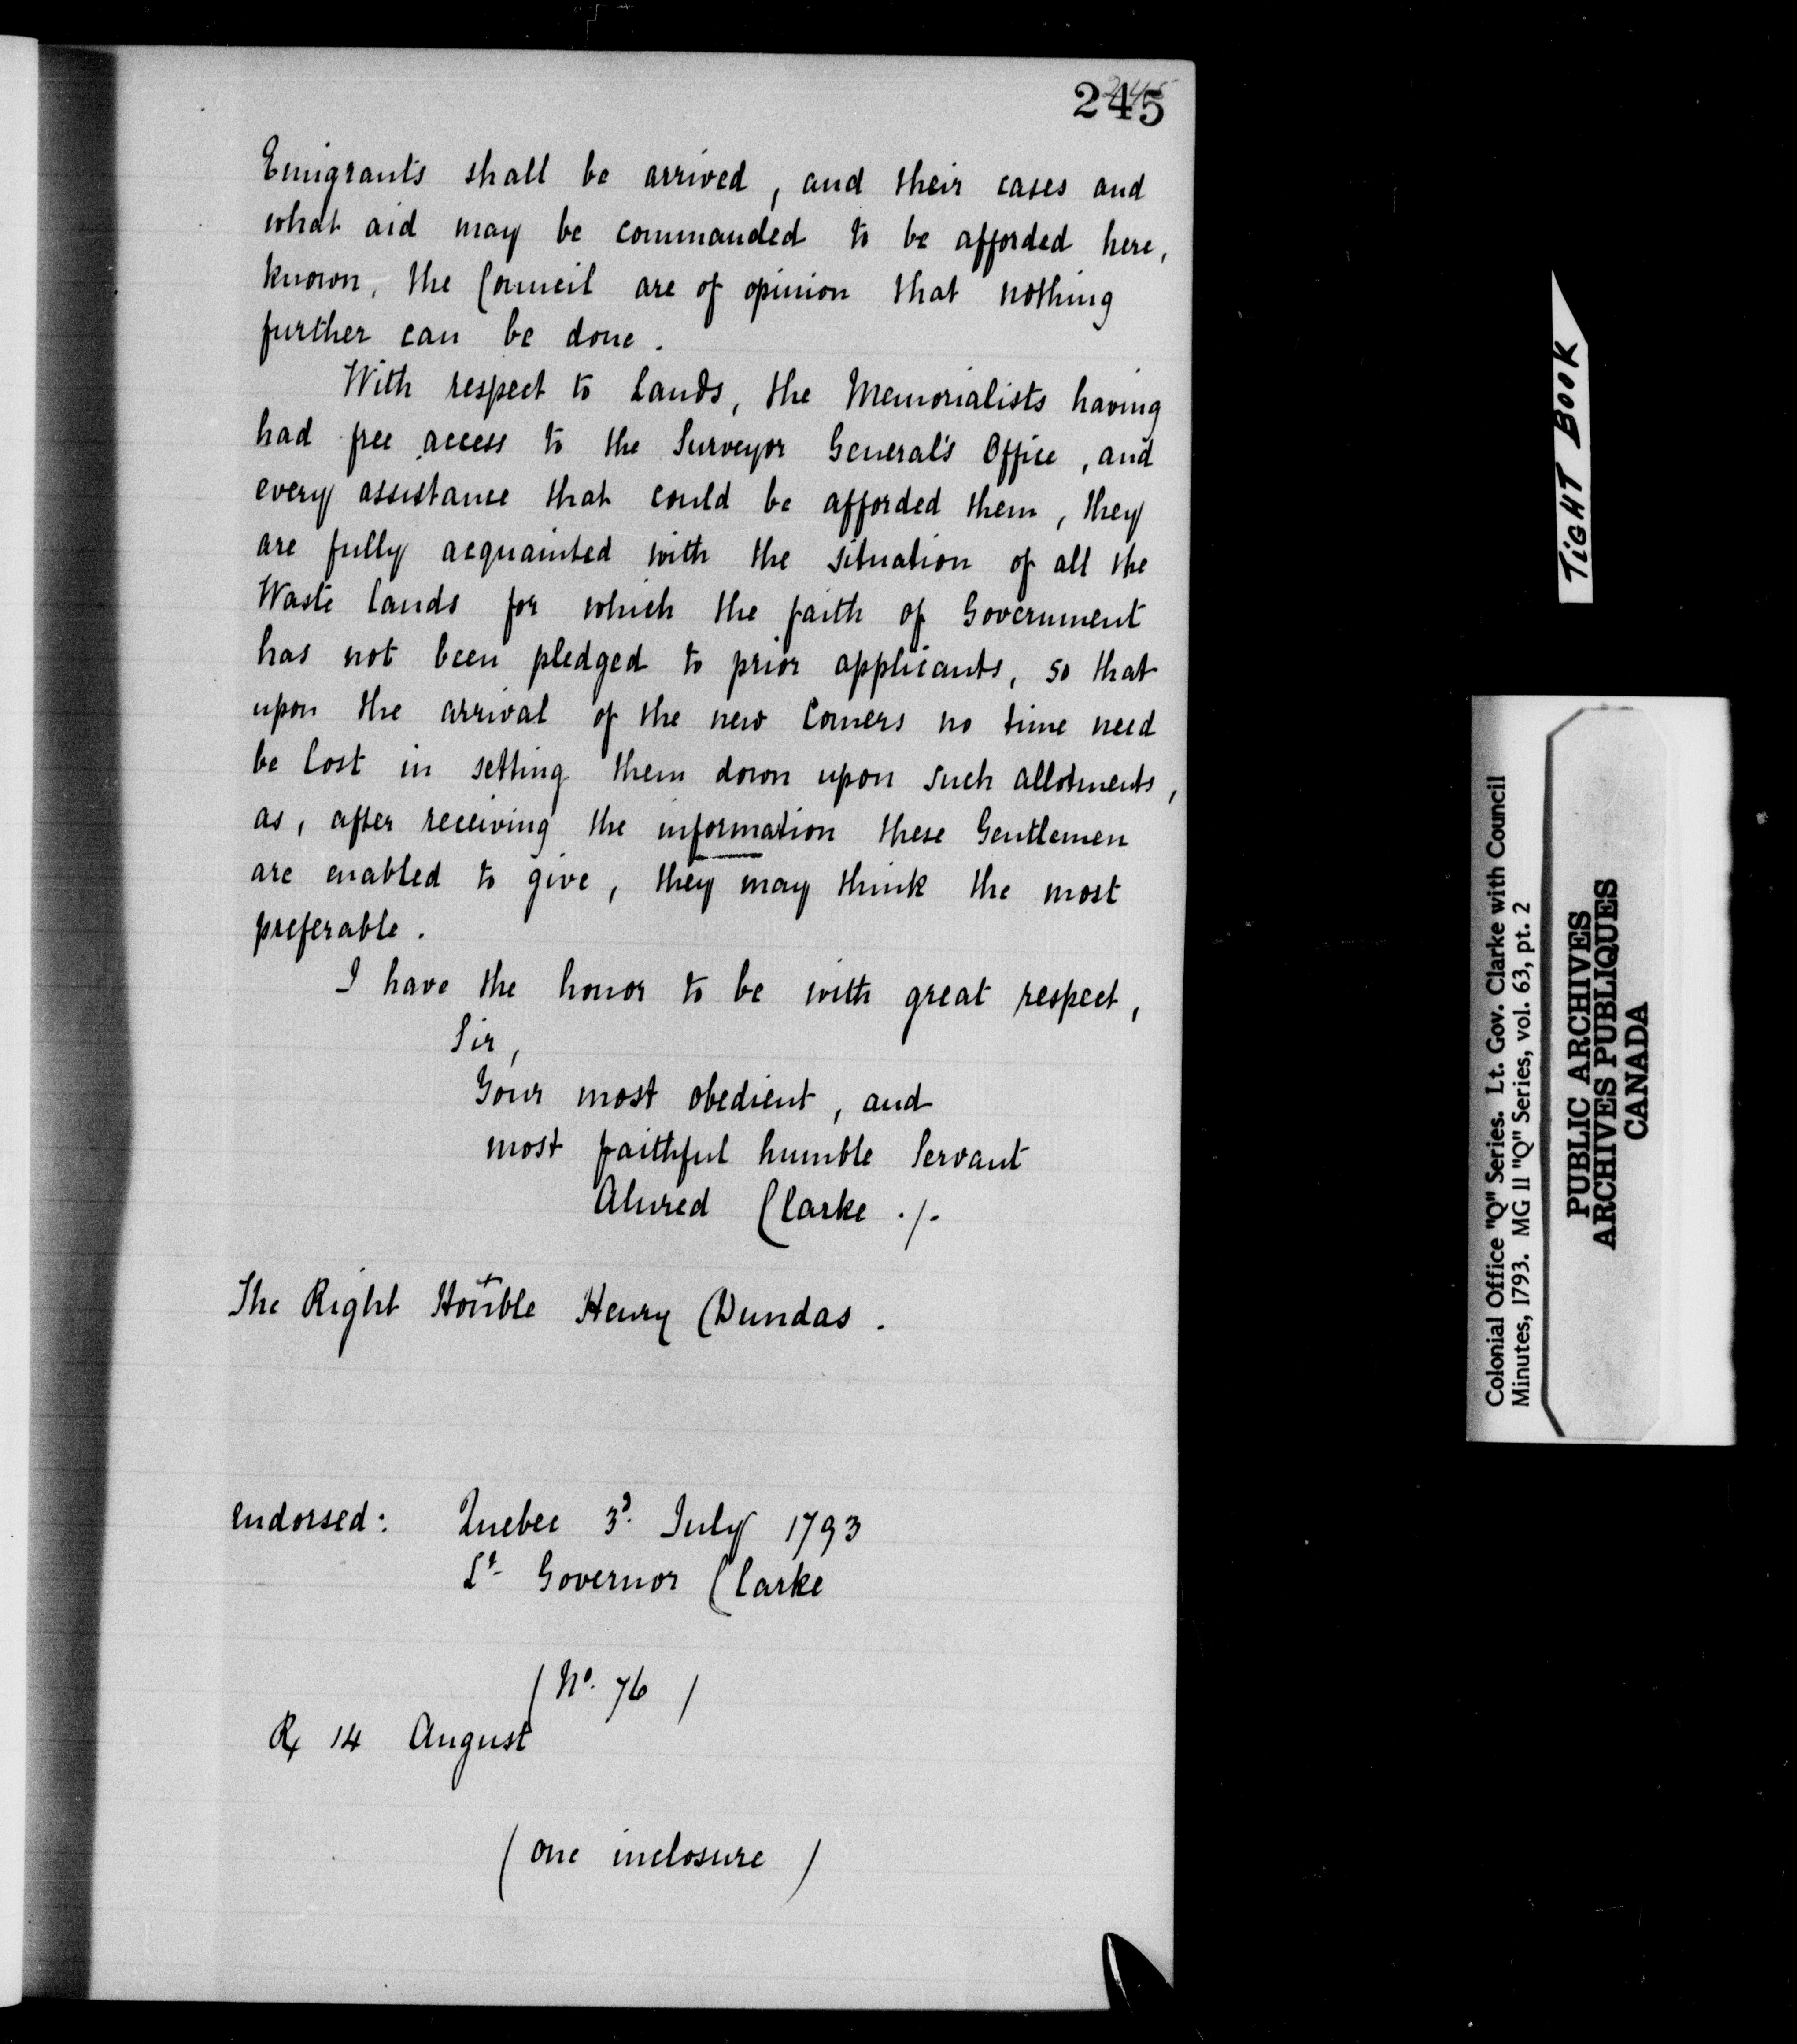 245
Emigrants shall be arrived, and their cases and
what aid may be commanded to be afforded here,
known, the Council are of opinion that nothing
further can be done.
With respect to Lands, the Memorialists having
had free access to the Surveyor General's Office, and
every assistance that could be afforded them, they
are fully acquainted with the situation of all the
Waste Lands for which the faith of Government
has not been pledged to prior applicants, so that
upon the arrival of the new Comers no time need
be lost in setting them down upon such allotments,
as, after receiving the information these Gentlemen
are enabled to give, they may think the most
preferable.
I have the honor to be with great respect,
Sir,
Your most obedient, and
most faithful humble Servant
Alured Clarke ./.
The Right Honble Henry Dundas.
endorsed: Quebec 3d. July 1793
Lt. Governor Clarke
(No. 76)
R 14 August
(one inclosure)
TIGHT BOOK
Colonial Office "Q" Series. Lt. Gov. Clarke with Council
Minutes, 1793. MG 11 "Q" Series, vol. 63, pt. 2
PUBLIC ARCHIVES
ARCHIVES PUBLIQUES
CANADA